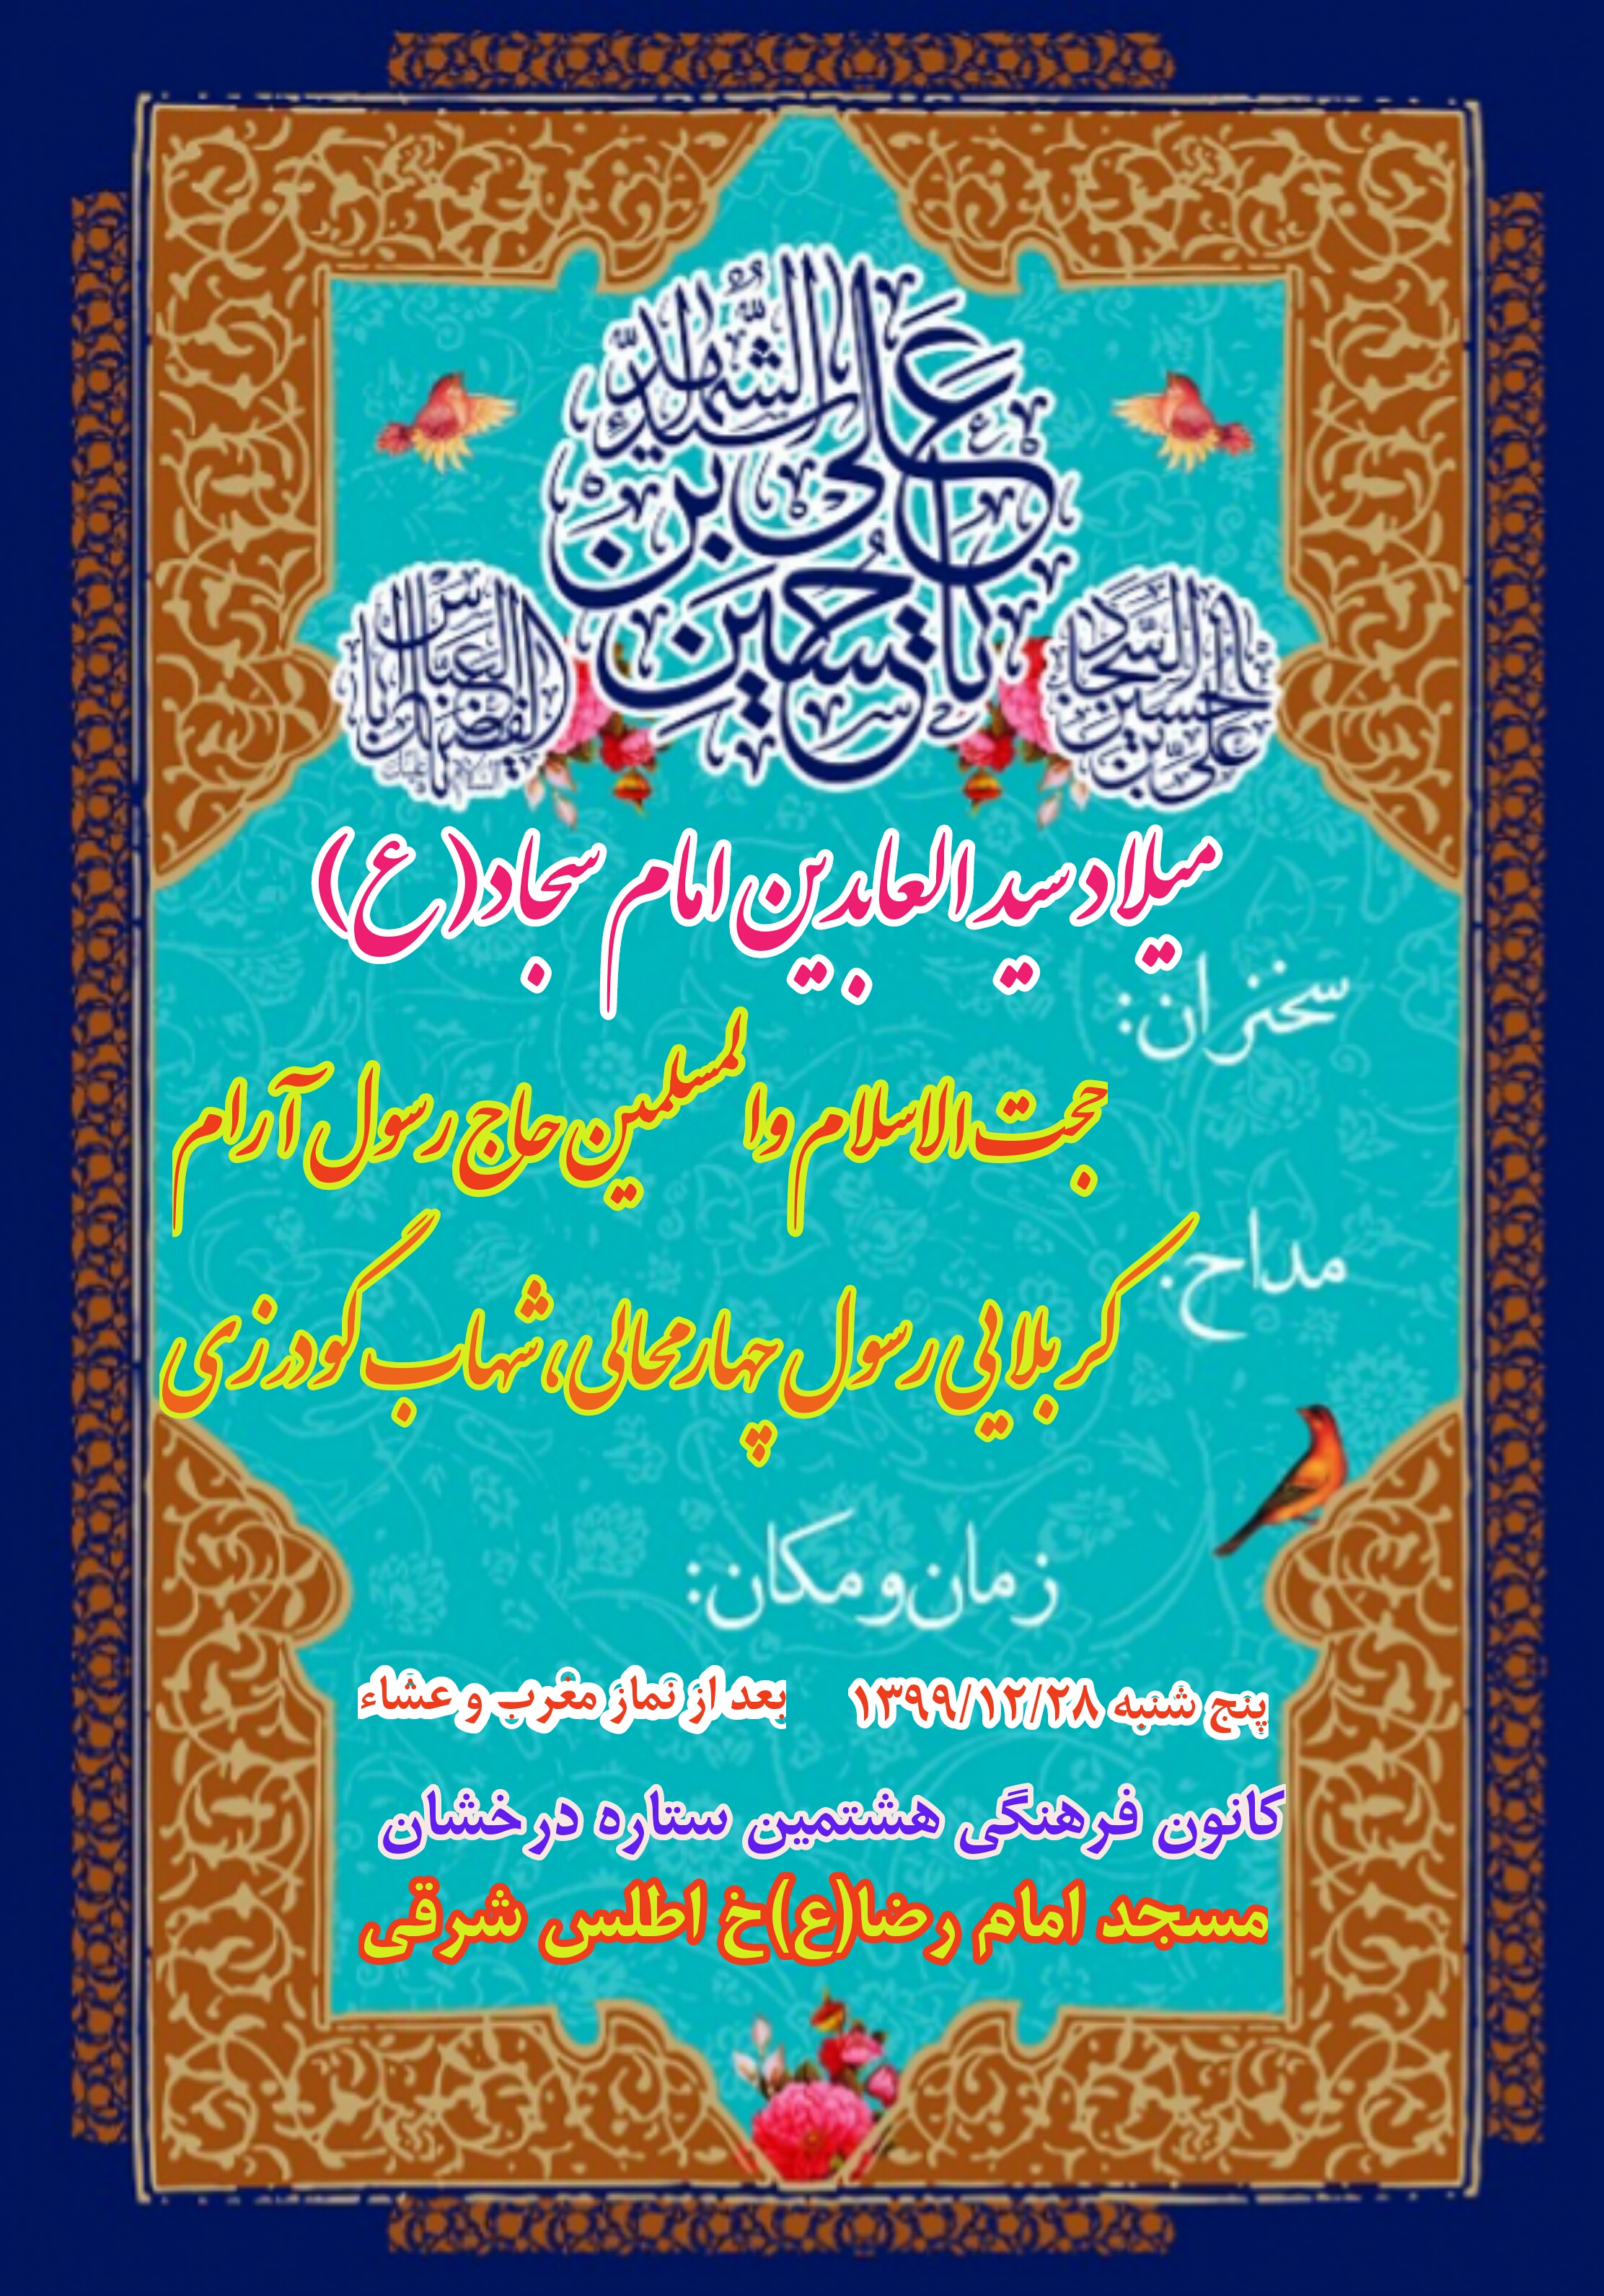 یا حسین بن علی سید الشهداء
علی بن الحسین السجاد
یا اباالفضل العباس
میلاد سید العابدین امام سجاد(ع)
سخنران:
حجت الاسلام والمسلمین حاج رسول آرام
مداح:
کربلایی رسول چهارمحالی، شهاب گودرزی
زمان و مکان:
پنج شنبه ۱۳۹۹/۱۲/۲۸ بعد از نماز مغرب و عشاء
کانون فرهنگی هشتمین ستاره درخشان
مسجد امام رضا(ع)خ اطلس شرقی